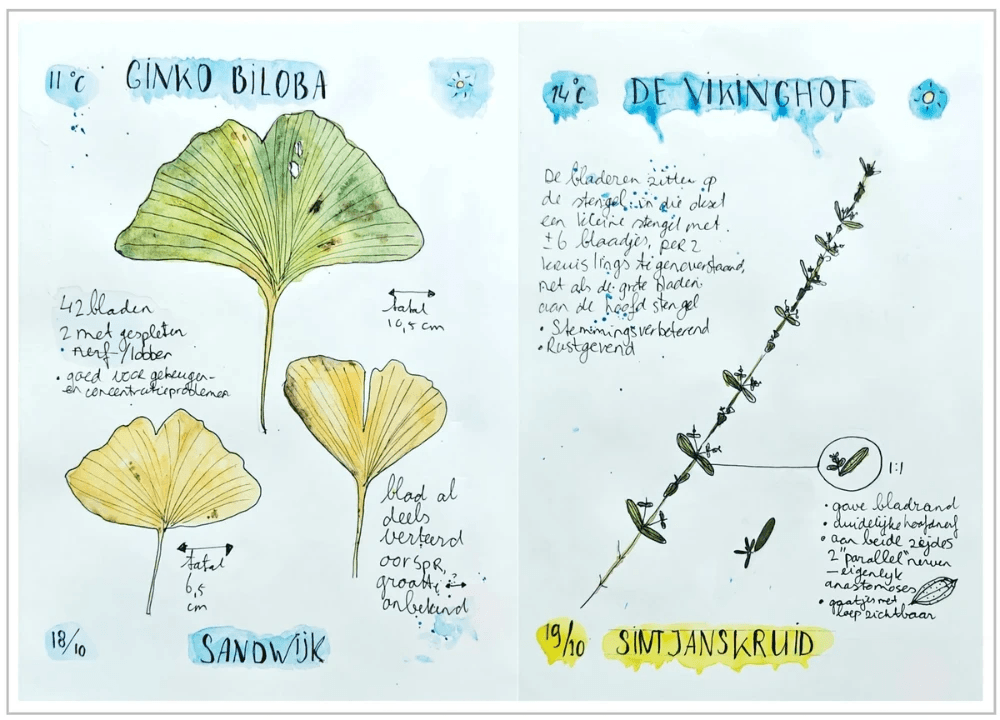 11°C
GINKO BILOBA
42 bladen
2 met gespleten
nerf-/lobben
• goed voor geheugen-
en concentratieproblemen
totaal
10,5 cm
totaal
6,5
cm
blad al
deels
verteerd
oorspr.
grootte:
onbekend
18/10
SANDWIJK
14°C
DE VIKINGHOF
De bladeren zitten op
de stengel: in die oksel
een kleine stengel met
±6 blaadjes, per 2
kruislings tegenoverstaand,
net als de grote bladen
aan de hoofdstengel
• Stemmingsverbeterend
• Rustgevend
1:1
• gave bladrand
• duidelijke hoofdnerf
• aan beide zijdes
2 "parallel" nerven
– eigenlijk
anastomoses
• gaatjes met
loep zichtbaar
19/10
SINT JANSKRUID